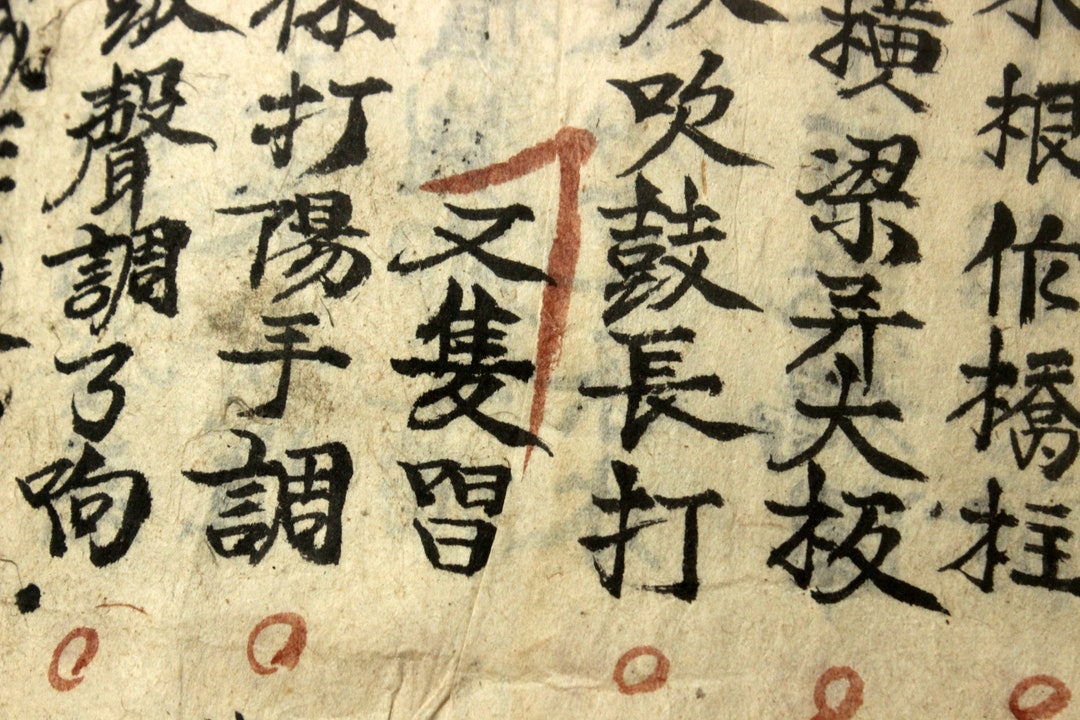 根作橋柱
橫梁弄大板
吹鼓長打
又隻習
打陽手調
聲調了呴